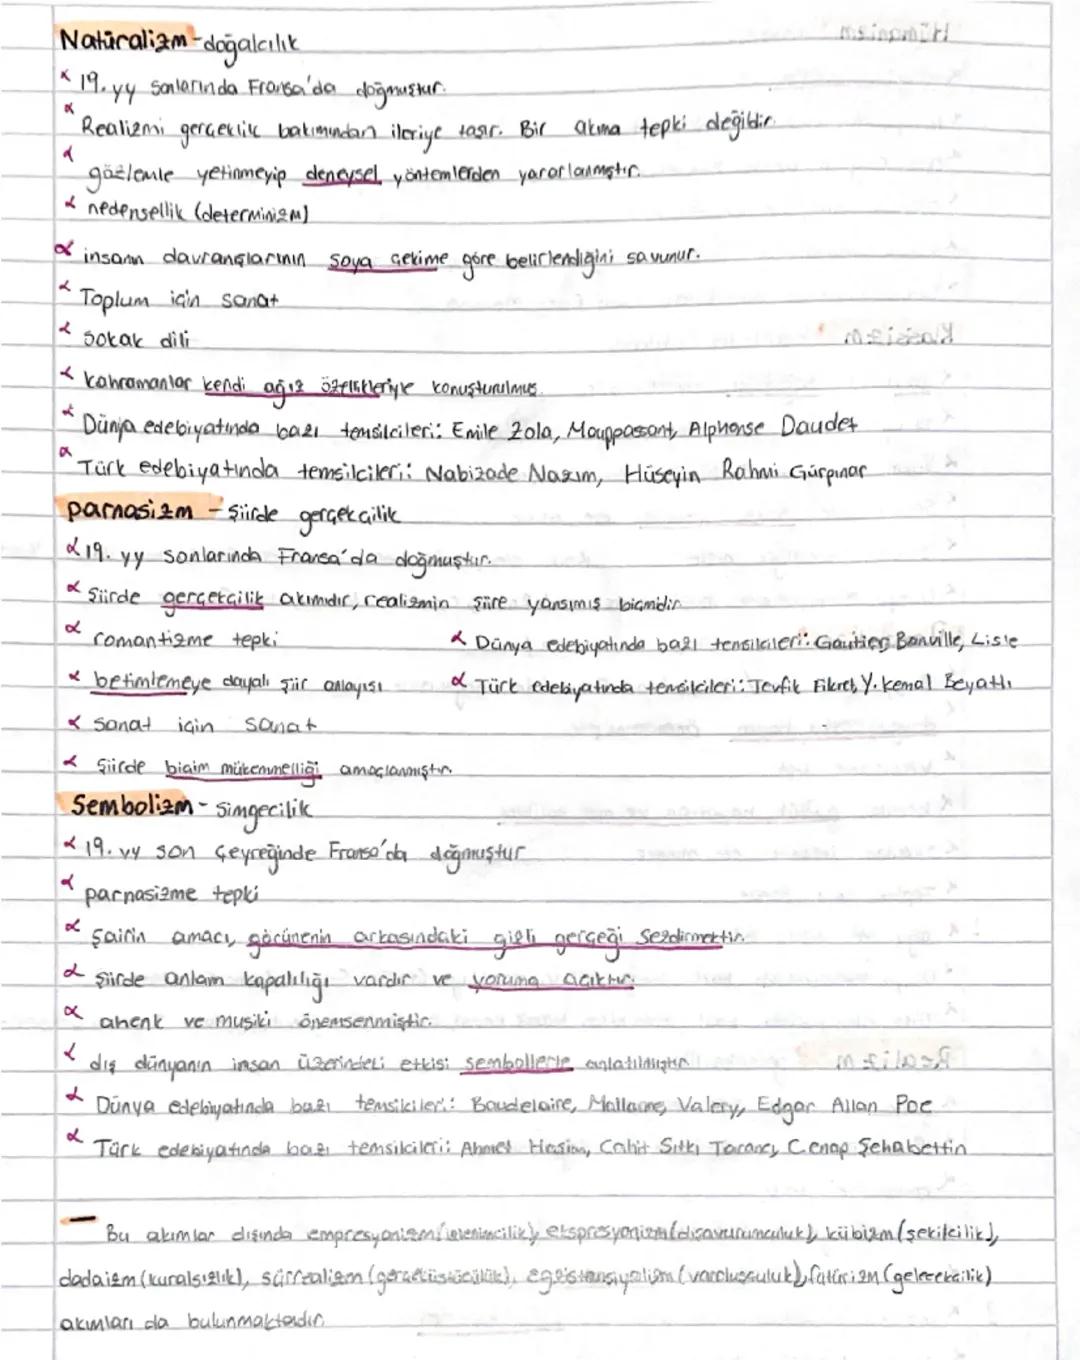 Natüralizm - doğalcılık
19. yy sonlarında Fransa'da doğmuştur.
Realizmi gerçeklik bakımından ileriye taşır. Bir akıma tepki değildir.
gözlemle yetinmeyip deneysel yöntemlerden yararlanmıştır.
nedensellik (determinizm)
insanın davranışlarının soya çekime göre belirlendiğini savunur.
Toplum için sanat
Sokak dili
kahramanlar kendi ağız özellikleriyle konuşturulmuş.
Dünya edebiyatında bazı temsilcileri: Emile Zola, Mauppasant, Alphonse Daudet
Türk edebiyatında temsilcileri: Nabizade Nazım, Hüseyin Rahmi Gürpınar
parnasizm - şiirde gerçekçilik
19. yy sonlarında Fransa'da doğmuştur.
Şiirde gerçekçilik akımıdır, realizmin şiire yansımış biçimidir.
romantizme tepki
Dünya edebiyatında bazı temsilcileri: Gautier, Banville, Lisle
betimlemeye dayalı şiir anlayışı
Türk edebiyatında temsilcileri: Tevfik Fikret, Y. Kemal Beyatlı
sanat için sanat
Şiirde biçim mükemmelliği amaçlanmıştır.
Sembolizm - Simgecilik
19. yy son çeyreğinde Fransa'da doğmuştur
parnasizme tepki
Şairin amacı, görünenin arkasındaki gizli gerçeği sezdirmektir.
Şiirde anlam kapalılığı vardır ve yoruma açıktır.
ahenk ve musiki önemsenmiştir.
dış dünyanın insan üzerindeki etkisi sembollerle anlatılmıştır.
Dünya edebiyatında bazı temsilcileri: Baudelaire, Mallarme, Valery, Edgar Allan Poe
Türk edebiyatında bazı temsilcileri: Ahmet Haşim, Cahit Sıtkı Tarancı, Cenap Şehabettin
Bu akımlar dışında empresyonizm (izlenimcilik), ekspresyonizm (dışavurumculuk), kübizm (şekilcilik),
dadaizm (kuralsızlık), sürrealizm (gerçeküstücülük), egzistansiyalizm (varoluşçuluk), fütürizm (gelecekçilik)
akımları da bulunmaktadır.